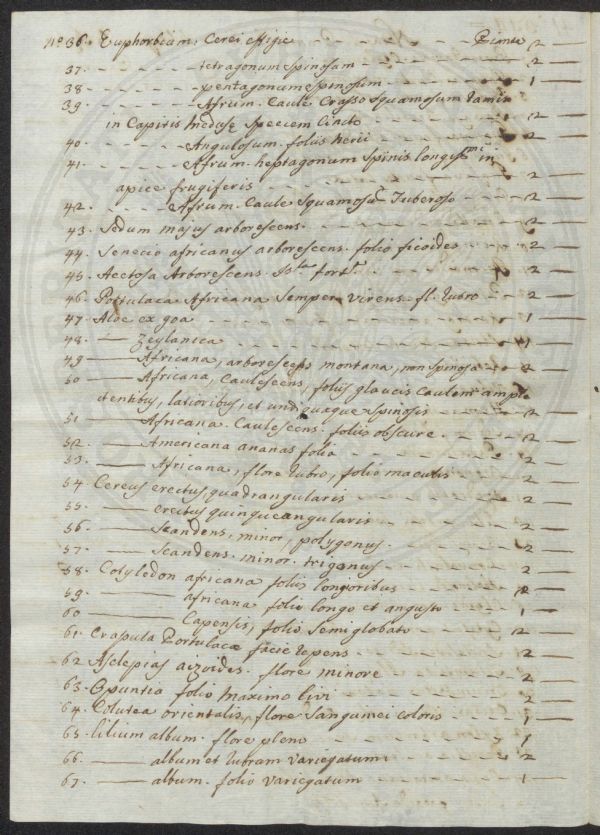 No 36. Euphorbium. Cerei effigie - - - - Piante 2 —
37. - - - - - - tetragonum spinosum - - - - - - 2 —
38 - - - - - - pentagonum spinosum - - - - - - 1 —
39 - - - - - - Afrum. Caule Crasso Squamosum Ramis
in Capitis Meduse Speciem Cincto - - - - 2 —
40. - - - - - Angulosum. foliis Nerii - - - - 2 —
41. - - - - - Afrum. heptagonum Spinis longiss.mi in
apice frugiferis - - - - - - 2 —
42. - - - - - Afrum. Caule Squamoso Tuberoso - - - 2 —
43. Sedum majus arborescens - - - - - 2 —
44. Senecio africanus arborescens. folio ficoides - - - 2 —
45. Acetosa Arborescens. - - - - 2 —
46. Portulaca Africana Semper virens. fl. rubro - - - 2 —
47. Aloe ex goa - - - - - - 1 —
48. — Zeylanica - - - - - - 1 —
49 — Africana, arborescens montana, non spinosa - - 2 —
50 — Africana, Caulescens, foliis glaucis Caulem ample
ctentibus, latioribus, et undiquaque spinosis - - - 2 —
51. — Africana. Caulescens. foliis obscure - - - 2 —
52. — Americana ananas folia - - - - 2 —
53. — Africana, flore rubro, folio maculis - - - 2 —
54. Cereus erectus, quadrangularis - - - - 2 —
55. — erectus quinqueangularis - - - - 2 —
56. — Scandens, minor, polygonus. - - - - 2 —
57. — Scandens. minor. trigonus - - - - 2 —
58. Cotyledon africana foliis longioribus - - - 2 —
59. — africana folio longo et angusto - - - 1 —
60 — Capensis, folio Semiglobato - - - 2 —
61. Crapula Portulacæ facie repens - - - - 2 —
62 Asclepias aizoides. flore minore - - - - 2 —
63. Opuntia folio maximo - - - - 2 —
64. Colutea orientalis, flore Sanguinei coloris - - - 1 —
65. Lilium album. flore pleno - - - - 1 —
66. — album et rubrum variegatum - - - - 2 —
67. — album. folio variegatum - - - - 1 —